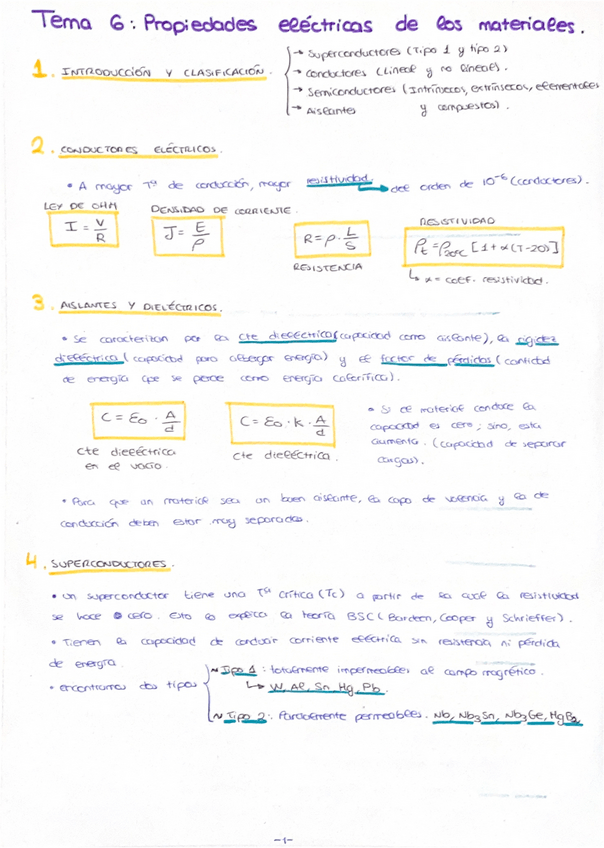 Tema 6: Propiedades eléctricas de los materiales.
1. INTRODUCCIÓN Y CLASIFICACIÓN.
→ Superconductores (Tipo 1 y tipo 2)
→ Conductores (Lineal y no lineal).
→ Semiconductores (Intrínsecos, extrínsecos, elementales
→ Aislantes y compuestos).
2. CONDUCTORES ELÉCTRICOS.
• A mayor Tª de conducción, mayor resistividad. → del orden de 10⁻⁶ (conductores).
LEY DE OHM DENSIDAD DE CORRIENTE. RESISTIVIDAD
I = V/R J = E/ρ R = ρ · L/S ρt = ρ20ºC [1 + α(T-20)]
RESISTENCIA ↳ α = coef. resistividad.
3. AISLANTES Y DIELÉCTRICOS.
• Se caracterizan por la cte dieléctrica (capacidad como aislante), la rigidez
dieléctrica (capacidad para albergar energía) y el factor de pérdidas (cantidad
de energía que se pierde como energía calorífica).
C = ε0 · A/d C = ε0 · k · A/d
cte dieléctrica en el vacío. cte dieléctrica.
• Si el material conduce la
capacidad es cero; sino, esta
aumenta. (capacidad de separar
cargas).
• Para que un material sea un buen aislante, la capa de valencia y la de
conducción deben estar muy separadas.
4. SUPERCONDUCTORES.
• Un superconductor tiene una Tª crítica (Tc) a partir de la cual la resistividad
se hace cero. Esto lo explica la teoría BSC (Bardeen, Cooper y Schrieffer).
• Tienen la capacidad de conducir corriente eléctrica sin resistencia ni pérdida
de energía.
• encontramos dos tipos
~ Tipo 1: totalmente impermeables al campo magnético.
↳ W, Al, Sn, Hg, Pb.
~ Tipo 2: Parcialmente permeables. Nb, Nb3Sn, Nb3Ge, MgB2
-1-